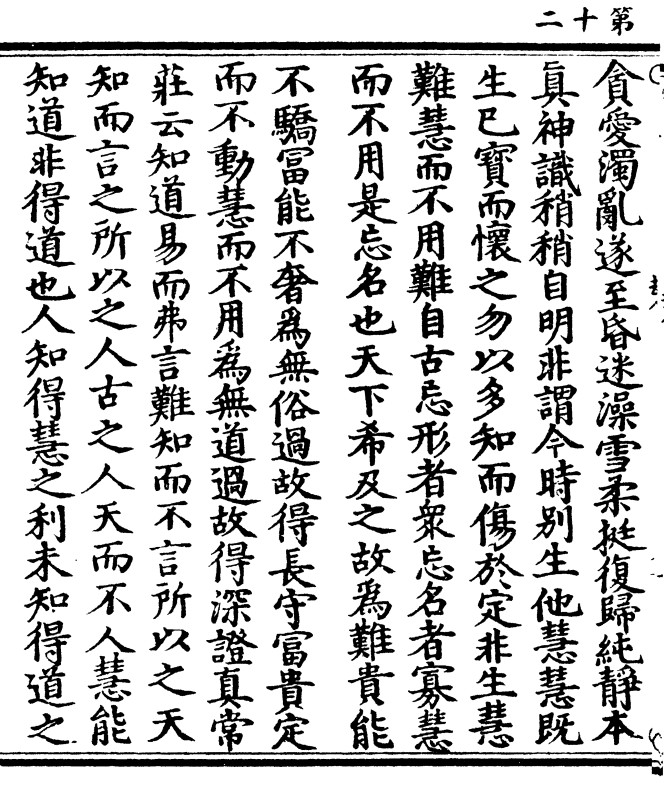 第十二
貪愛濁亂遂至昏迷澡雪柔挺復歸純靜本
真神識稍稍自明非謂今時別生他慧慧既
生已寳而懷之勿以多知而傷於定非生慧
難慧而不用難自古忘形者衆忘名者寡慧
而不用是忘名也天下希及之故爲難貴能
不驕冨能不奢爲無俗過故得長守冨貴定
而不動慧而不用爲無道過故得深證真常
莊云知道易而弗言難知而不言所以之天
知而言之所以之人古之人天而不人慧能
知道非得道也人知得慧之利未知得道之